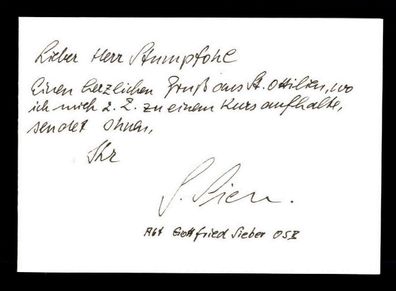 Lieber Herr Stumpfohl
Einen herzlichen Gruß aus St. Ottilien, wo
ich mich z. Z. zu einem Kurs aufhalte,
sendet Ihnen,
Ihr
Abt Gottfried Sieber OSB